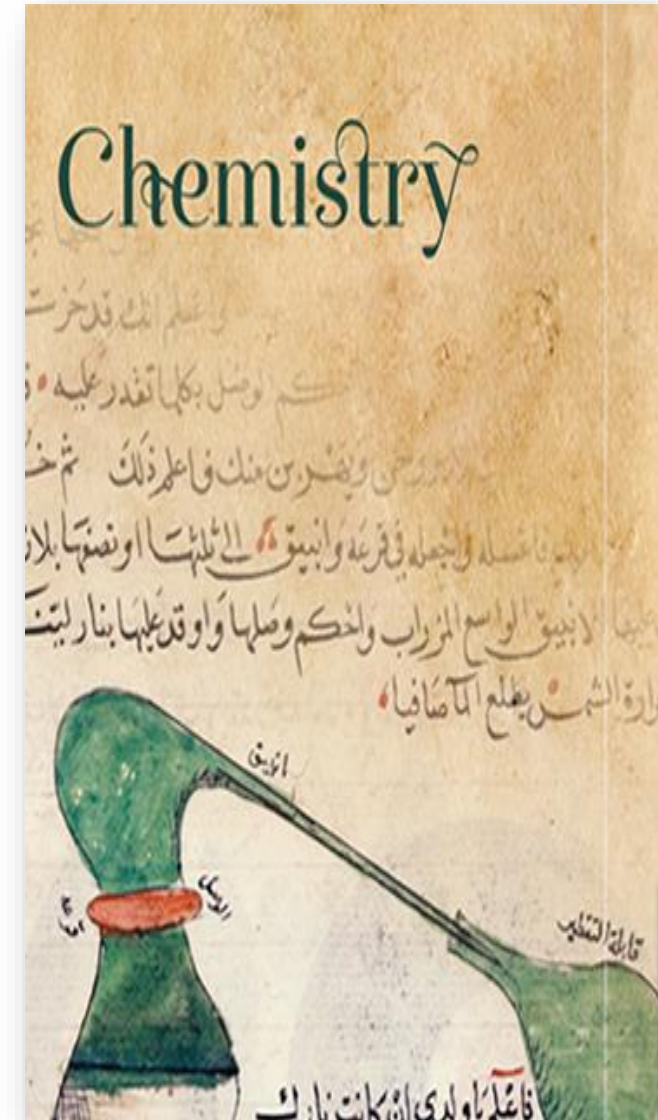 Chemistry
واعلم انك قد حزت
حكم الوصل بكلما تقدر عليه
منك فاعلم ذلك ثم
فاغسله واجعله في قرعة وانبيق الى ثلثها او نصفها
الانبيق الواسع المزراب واحكم وصلها واوقد عليها بنار
الشمس يطلع الما صافيا
انبيق
الوصل
قابلة التقطير
فاعلم يا ولدي ان كانت نارك